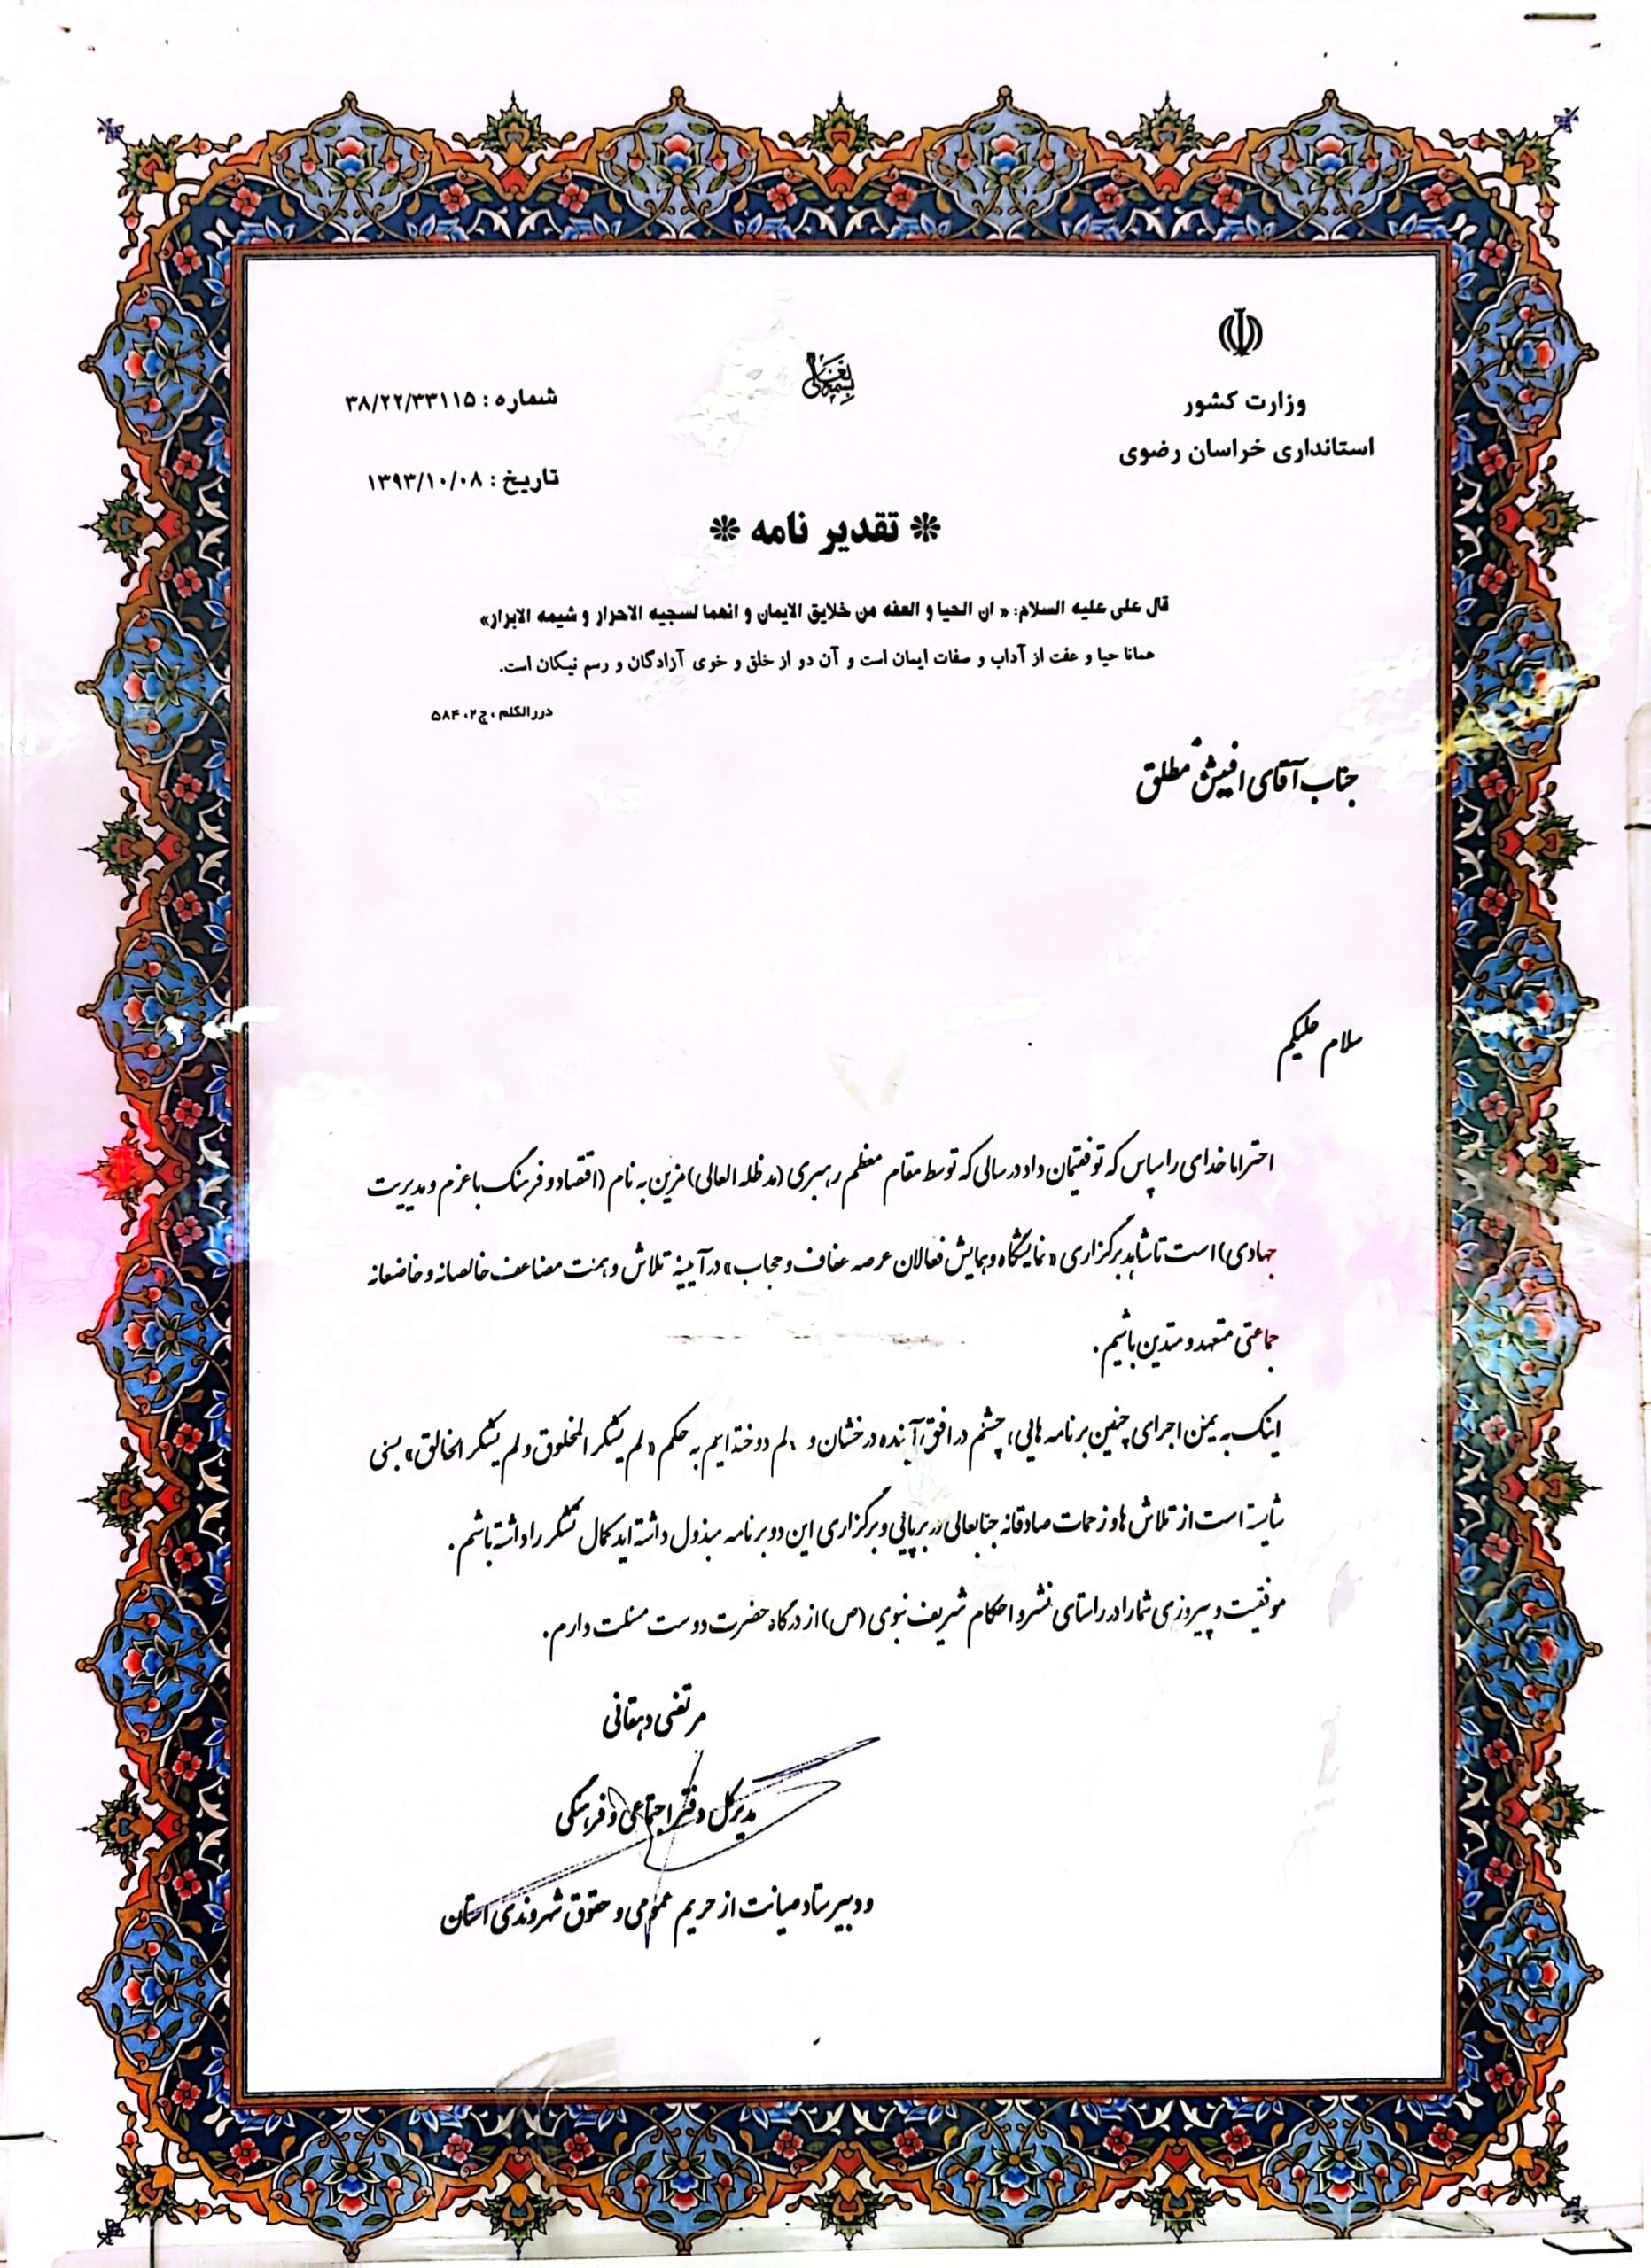 بسمه تعالی
وزارت کشور
استانداری خراسان رضوی
شماره : ۳۸/۲۲/۳۳۱۱۵
تاریخ : ۱۳۹۳/۱۰/۰۸
❊ تقدیر نامه ❊
قال علی علیه السلام: « ان الحیا و العفه من خلایق الایمان و انهما لسجیه الاحرار و شیمه الابرار»
همانا حیا و عفت از آداب و صفات ایمان است و آن دو از خلق و خوی آزادگان و رسم نیکان است.
دررالکلم ، ج۲، ۵۸۴
جناب آقای افیش مطلق
سلام علیکم
احتراما خدای را سپاس که توفیقمان داد در سالی که توسط مقام معظم رهبری (مد ظله العالی) مزین به نام (اقتصاد و فرهنگ با عزم و مدیریت
جهادی) است تا شاهد برگزاری « نمایشگاه و همایش فعالان عرصه عفاف و حجاب» در آیینه تلاش و همت مضاعف خالصانه و خاضعانه
جماعتی متعهد و متدین باشیم.
اینک به یمن اجرای چنین برنامه هایی، چشم در افق آینده درخشان و دوخته ایم به حکم « لم یشکر المخلوق و لم یشکر الخالق» بسی
شایسته است از تلاش ها و زحمات صادقانه جنابعالی در برپایی و برگزاری این دو برنامه مبذول داشته اید کمال تشکر را داشته باشم.
موفقیت و پیروزی شما را در راستای نشر و احکام شریف نبوی (ص) از درگاه حضرت دوست مسئلت دارم.
مرتضی دهقانی
مدیرکل دفتر اجتماعی و فرهنگی
و دبیر ستاد صیانت از حریم عمومی و حقوق شهروندی استان